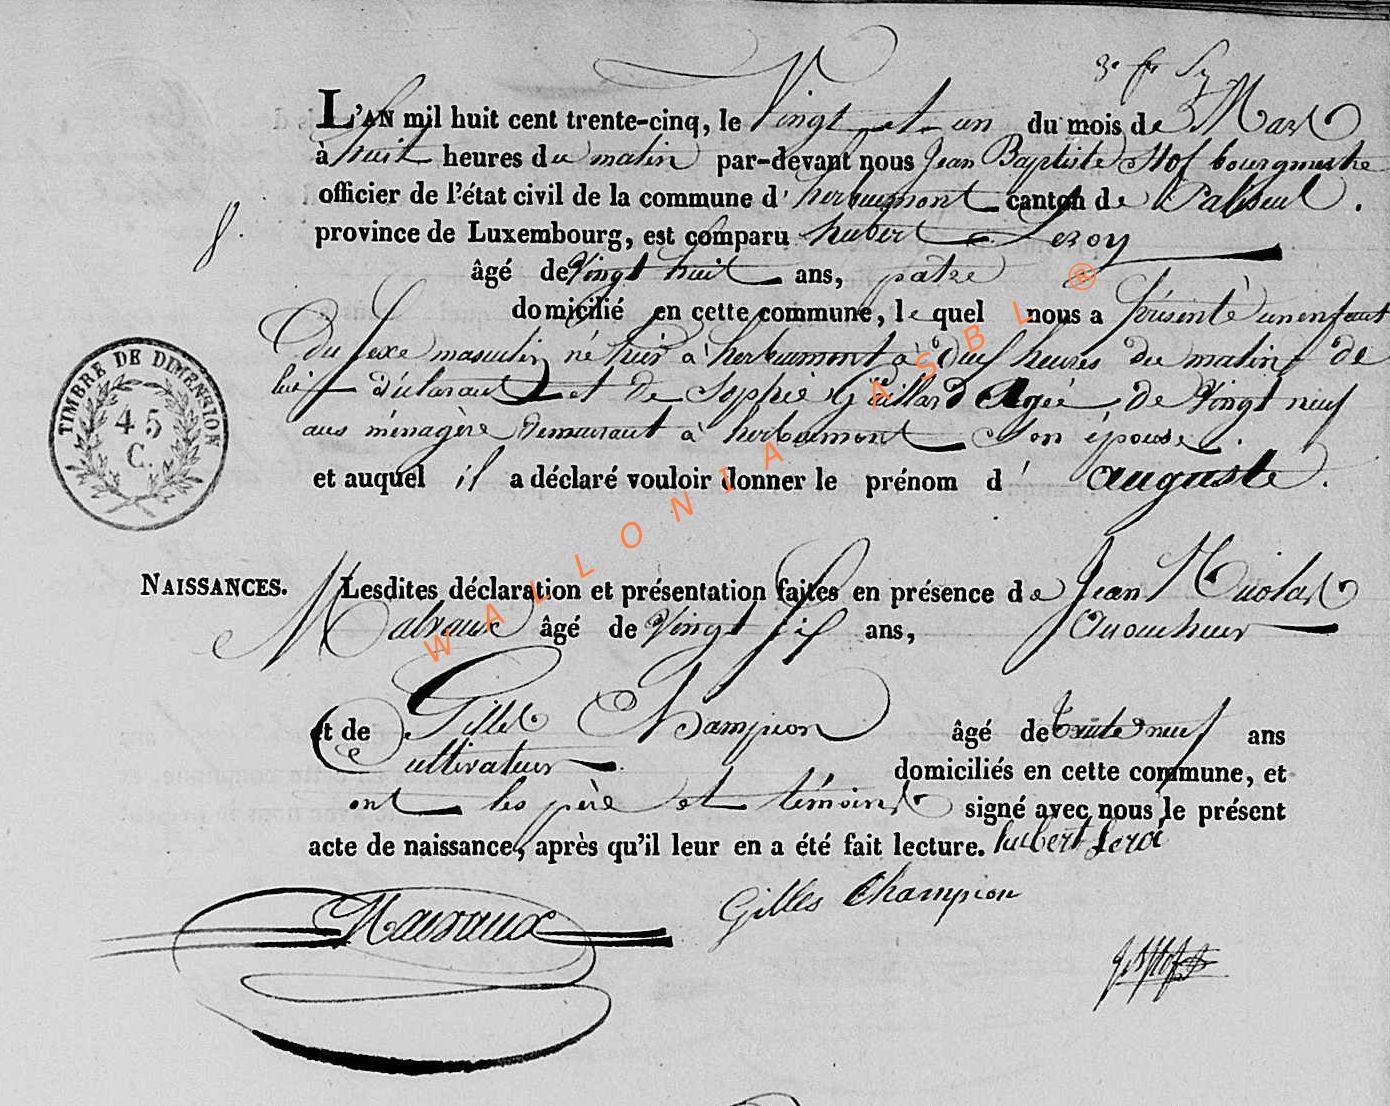 L'AN mil huit cent trente-cinq, le Vingt et un du mois de Mars
à huit heures du matin par-devant nous Jean Baptiste Stof bourgmestre
officier de l'état civil de la commune d' herbeumont canton de Paliseul.
province de Luxembourg, est comparu hubert Leroy
8.
âgé de Vingt huit ans, patre
domicilié en cette commune, le quel nous a présenté un enfant
du sexe masculin né hier à herbeumont à neuf heures du matin de
lui déclarant et de Sophie Gaillard Agée de Vingt neuf
ans ménagère demeurant à herbeumont Son épouse.
et auquel il a déclaré vouloir donner le prénom d' auguste.
TIMBRE DE DIMENSION
45
C.
NAISSANCES. Lesdites déclaration et présentation faites en présence de Jean Nicolas
Malvaux âgé de Vingt Six ans, accoucheur
et de Gilles Champion âgé de trente neuf ans
Cultivateur domiciliés en cette commune, et
ont les père et témoins signé avec nous le présent
acte de naissance, après qu'il leur en a été fait lecture. hubert Leroi
Gilles Champion
WALLONIA ASBL ®